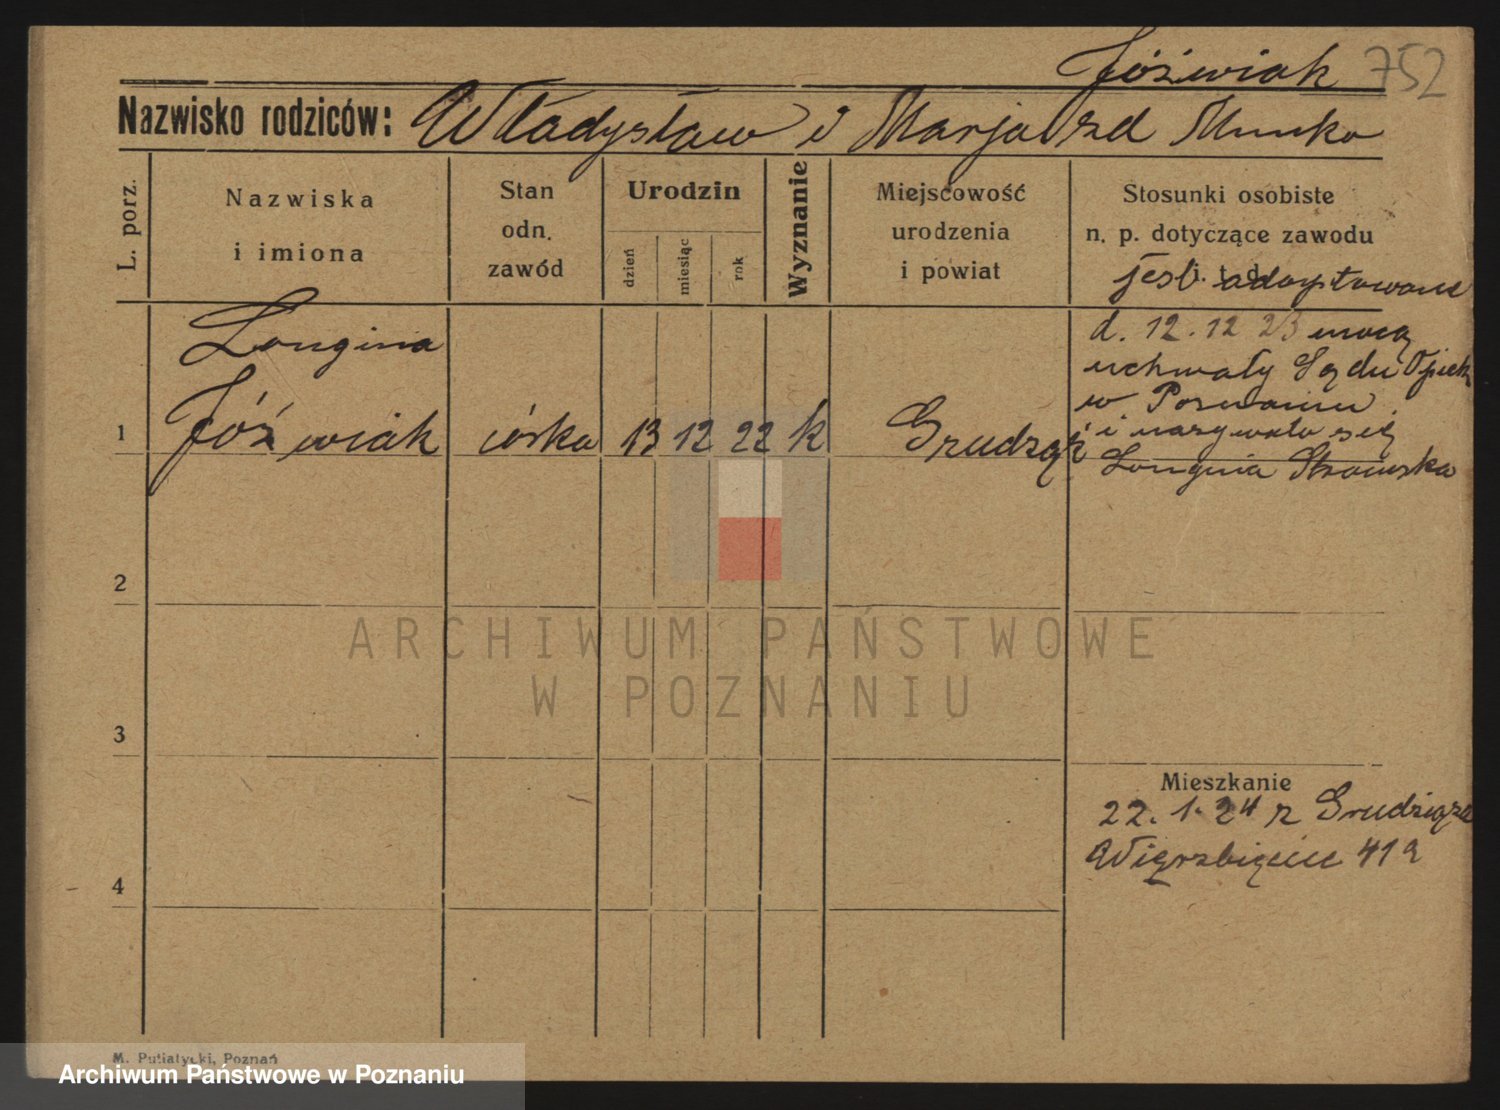 Jóźwiak 752
Nazwisko rodziców: Władysław i Marja zd Munko
L. porz.
Nazwiska
i imiona
Stan
odn.
zawód
Urodzin
dzień
miesiąc
rok
Wyznanie
Miejscowość
urodzenia
i powiat
Stosunki osobiste
n. p. dotyczące zawodu
i. t. d.
jest adoptowane
d. 12.12 23 mocą
uchwały Sądu Opiek
w Poznaniu
i nazywała się
Longina
1 Jóźwiak córka 13 12 22 k Grudziąż
Longina
2
ARCHIWUM PAŃSTWOWE
W POZNANIU
3
Mieszkanie
22. 1. 24 z Grudziąza
4
M. Putiatycki, Poznań
Archiwum Państwowe w Poznaniu